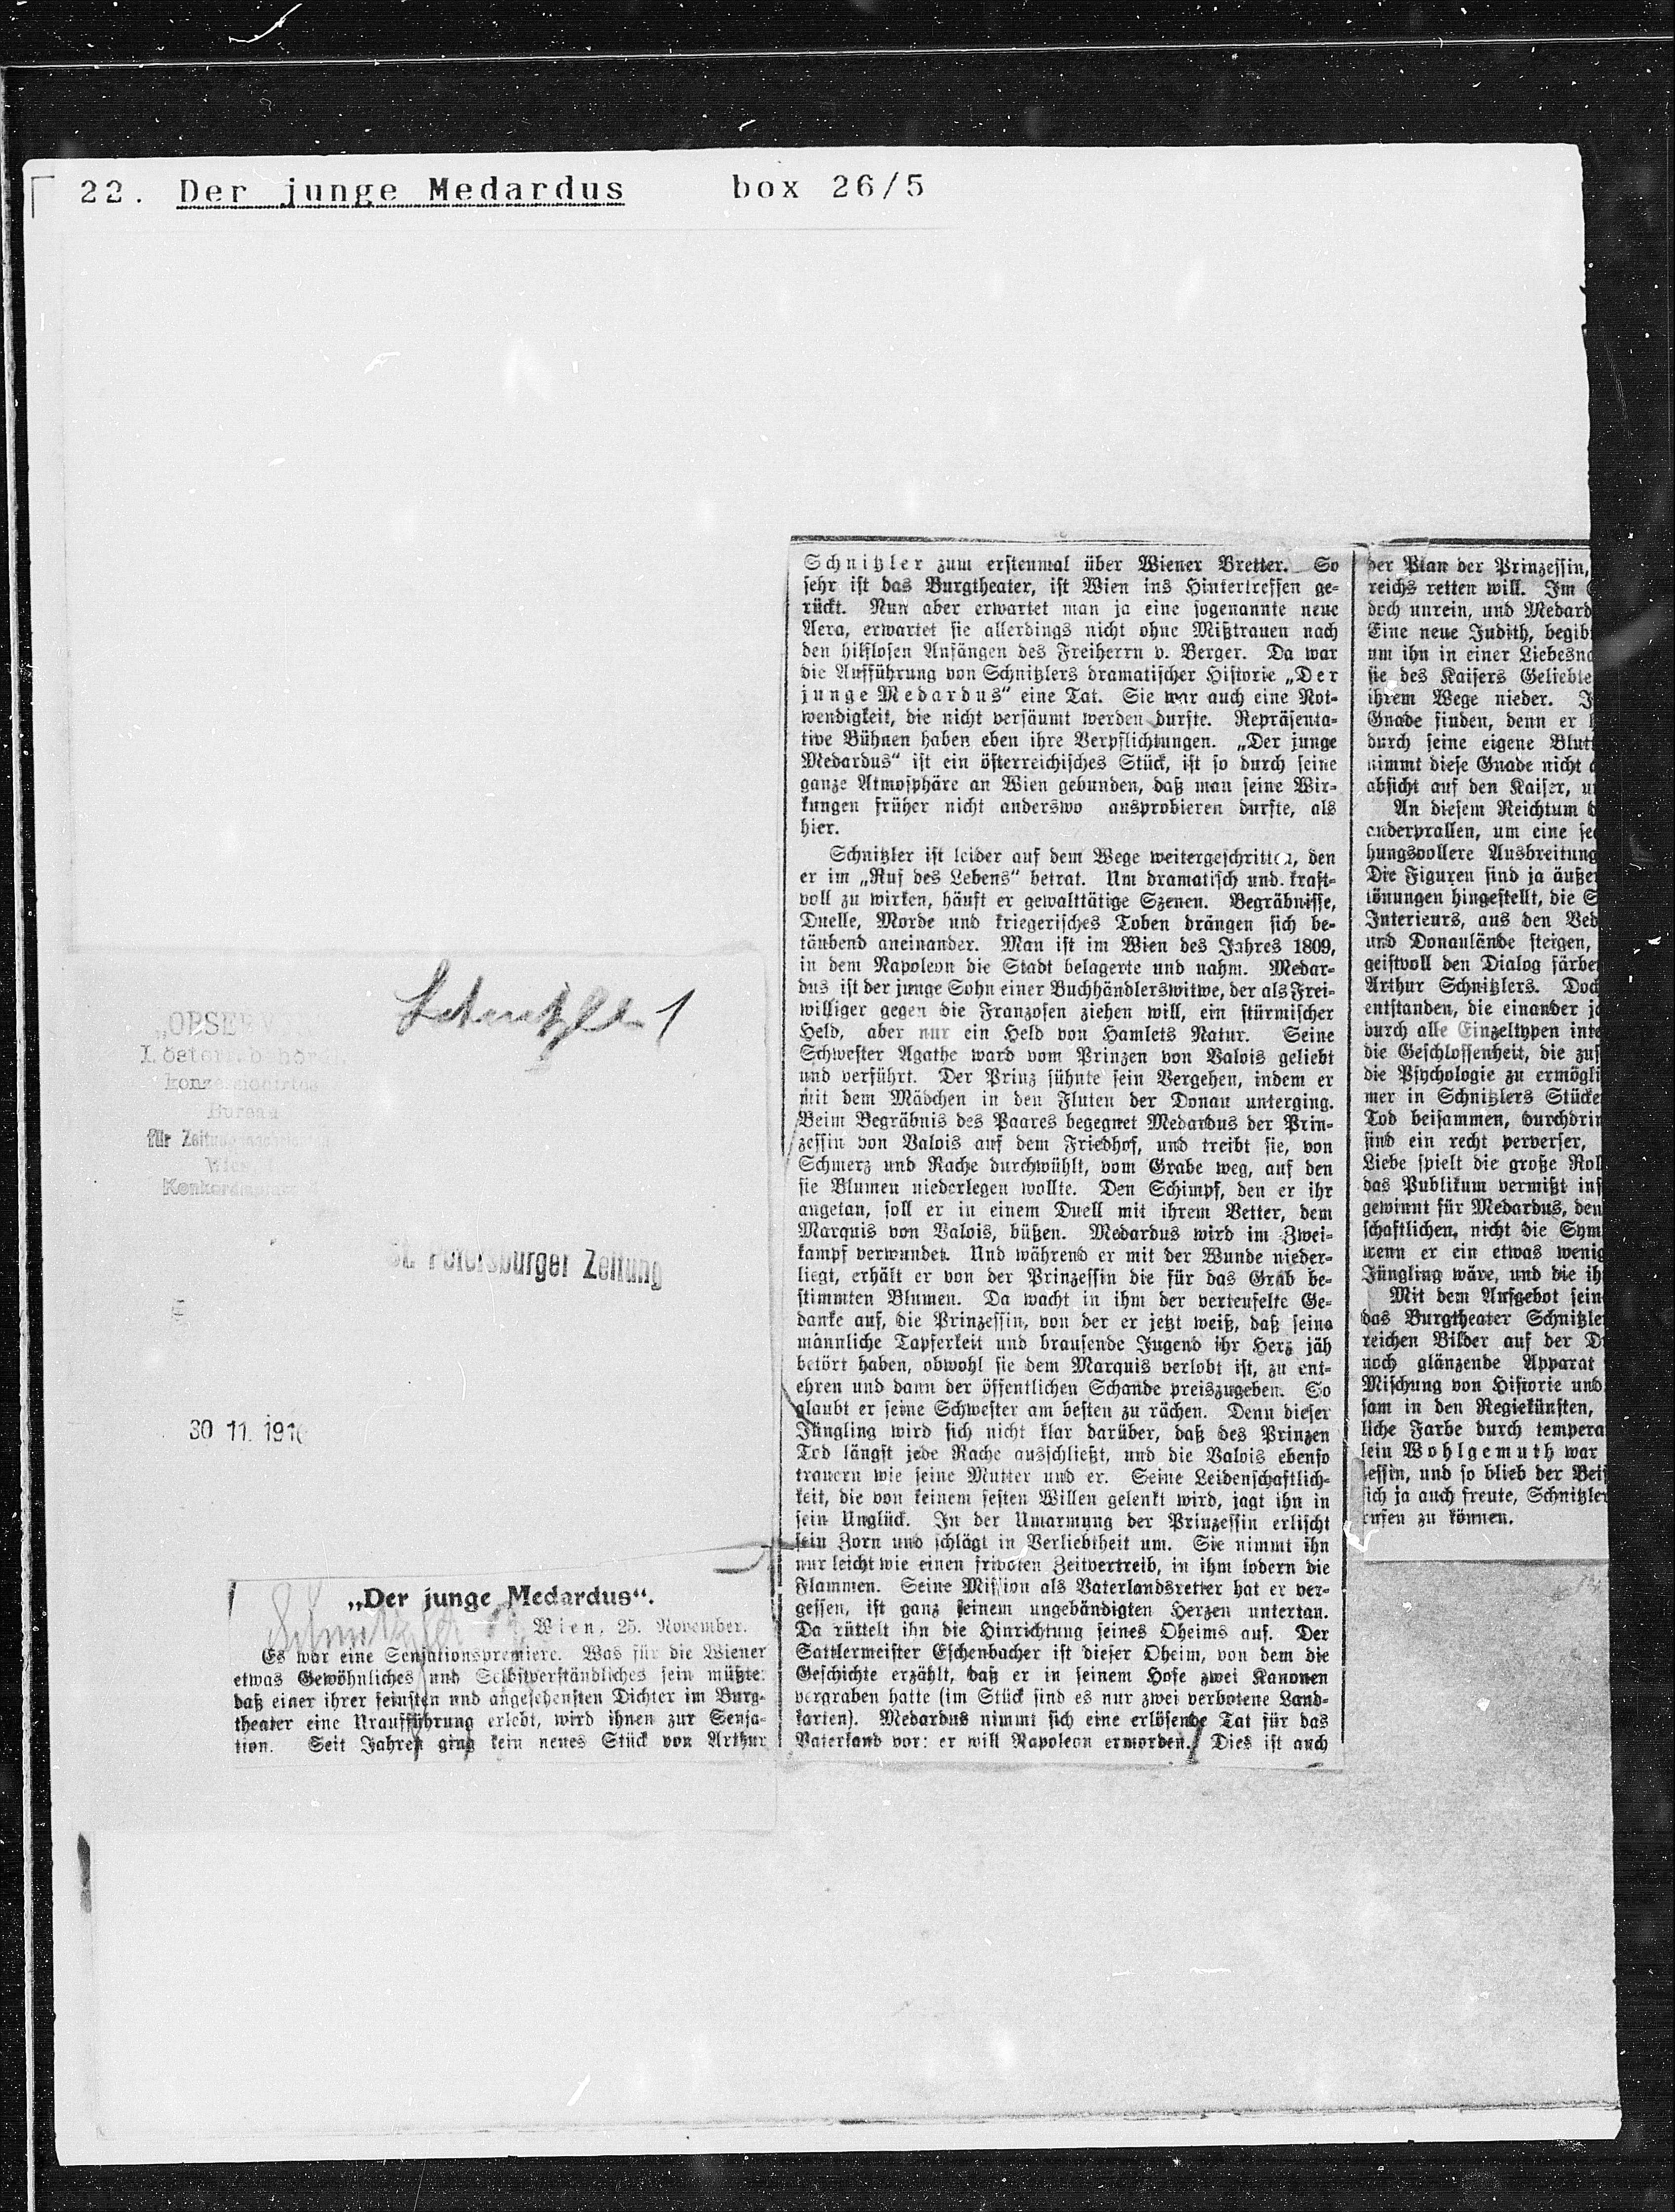 22. Der junge Medardus box 26/5
„OBSERVER"
I. österr. behördl.
konzessioniertes
Bureau
für Zeitungsnachrichten
Wien, I.
Konkordiaplatz 4
Schnitzler 1
St. Petersburger Zeitung
30 11. 1910
„Der junge Medardus“.
Wien, 25. November.
Es war eine Sensationspremiere. Was für die Wiener
etwas Gewöhnliches und Selbstverständliches sein müßte:
daß einer ihrer feinsten und angesehensten Dichter im Burg-
theater eine Uraufführung erlebt, wird ihnen zur Sensa-
tion. Seit Jahren ging kein neues Stück von Arthur
Schnitzler zum erstenmal über Wiener Bretter. So
sehr ist das Burgtheater, ist Wien ins Hintertreffen ge-
rückt. Nun aber erwartet man ja eine sogenannte neue
Aera, erwartet sie allerdings nicht ohne Mißtrauen nach
den hilflosen Anfängen des Freiherrn v. Berger. Da war
die Aufführung von Schnitzlers dramatischer Historie „Der
junge Medardus“ eine Tat. Sie war auch eine Not-
wendigkeit, die nicht versäumt werden durfte. Repräsenta-
tive Bühnen haben eben ihre Verpflichtungen. „Der junge
Medardus“ ist ein österreichisches Stück, ist so durch seine
ganze Atmosphäre an Wien gebunden, daß man seine Wir-
kungen früher nicht anderswo ausprobieren durfte, als
hier.
Schnitzler ist leider auf dem Wege weitergeschritten, den
er im „Ruf des Lebens“ betrat. Um dramatisch und. kraft-
voll zu wirken, häuft er gewalttätige Szenen. Begräbnisse,
Duelle, Morde und kriegerisches Toben drängen sich be-
täubend aneinander. Man ist im Wien des Jahres 1809,
in dem Napoleon die Stadt belagerte und nahm. Medar-
dus ist der junge Sohn einer Buchhändlerswitwe, der als Frei-
williger gegen die Franzosen ziehen will, ein stürmischer
Held, aber nur ein Held von Hamlets Natur. Seine
Schwester Agathe ward vom Prinzen von Valois geliebt
und verführt. Der Prinz sühnte sein Vergehen, indem er
mit dem Mädchen in den Fluten der Donau unterging.
Beim Begräbnis des Paares begegnet Medardus der Prin-
zessin von Valois auf dem Friedhof, und treibt sie, von
Schmerz und Rache durchwühlt, vom Grabe weg, auf den
sie Blumen niederlegen wollte. Den Schimpf, den er ihr
angetan, soll er in einem Duell mit ihrem Vetter, dem
Marquis von Valois, büßen. Medardus wird im Zwei-
kampf verwundet. Und während er mit der Wunde nieder-
liegt, erhält er von der Prinzessin die für das Grab be-
stimmten Blumen. Da wacht in ihm der verteufelte Ge-
danke auf, die Prinzessin, von der er jetzt weiß, daß seine
männliche Tapferkeit und brausende Jugend ihr Herz jäh
betört haben, obwohl sie dem Marquis verlobt ist, zu ent-
ehren und dann der öffentlichen Schande preiszugeben. So
glaubt er seine Schwester am besten zu rächen. Denn dieser
Jüngling wird sich nicht klar darüber, daß des Prinzen
Tod längst jede Rache ausschließt, und die Valois ebenso
trauern wie seine Mutter und er. Seine Leidenschaftlich-
keit, die von keinem festen Willen gelenkt wird, jagt ihn in
sein Unglück. In der Umarmung der Prinzessin erlischt
sein Zorn und schlägt in Verliebtheit um. Sie nimmt ihn
nur leicht wie einen frivolen Zeitvertreib, in ihm lodern die
Flammen. Seine Mission als Vaterlandsretter hat er ver-
gessen, ist ganz seinem ungebändigten Herzen untertan.
Da rüttelt ihn die Hinrichtung seines Oheims auf. Der
Sattlermeister Eschenbacher ist dieser Oheim, von dem die
Geschichte erzählt, daß er in seinem Hofe zwei Kanonen
vergraben hatte (im Stück sind es nur zwei verbotene Land-
karten). Medardus nimmt sich eine erlösende Tat für das
Vaterland vor: er will Napoleon ermorden. Dies ist auch
der Plan der Prinzessin,
reichs retten will. Im
doch unrein, und Medard
Eine neue Judith, begib
um ihn in einer Liebesna
sie des Kaisers Geliebte
ihrem Wege nieder. J
Gnade finden, denn er
durch seine eigene Blut
nimmt diese Gnade nicht a
absicht auf den Kaiser, u
An diesem Reichtum
anderprallen, um eine se
hungsvollere Ausbreitung
Die Figuren sind ja äuße
tönungen hingestellt, die S
Interieurs, aus den Ved
und Donaulände steigen,
geistvoll den Dialog färbe
Arthur Schnitzlers. Doch
entstanden, die einander j
durch alle Einzeltypen inte
die Geschlossenheit, die zus
die Psychologie zu ermögli
mer in Schnitzlers Stücke
Tod beisammen, durchdrin
sind ein recht perverser,
Liebe spielt die große Rol
das Publikum vermißt ins
gewinnt für Medardus, den
schaftlichen, nicht die Sym
wenn er ein etwas wenig
Jüngling wäre, und die ih
Mit dem Aufgebot sein
das Burgtheater Schnitzle
reichen Bilder auf der D
noch glänzende Apparat
Mischung von Historie und
sam in den Regiekünsten,
liche Farbe durch tempera
lein Wohlgemuth war
zessin, und so blieb der Bei
sich ja auch freute, Schnitzle
rufen zu können.